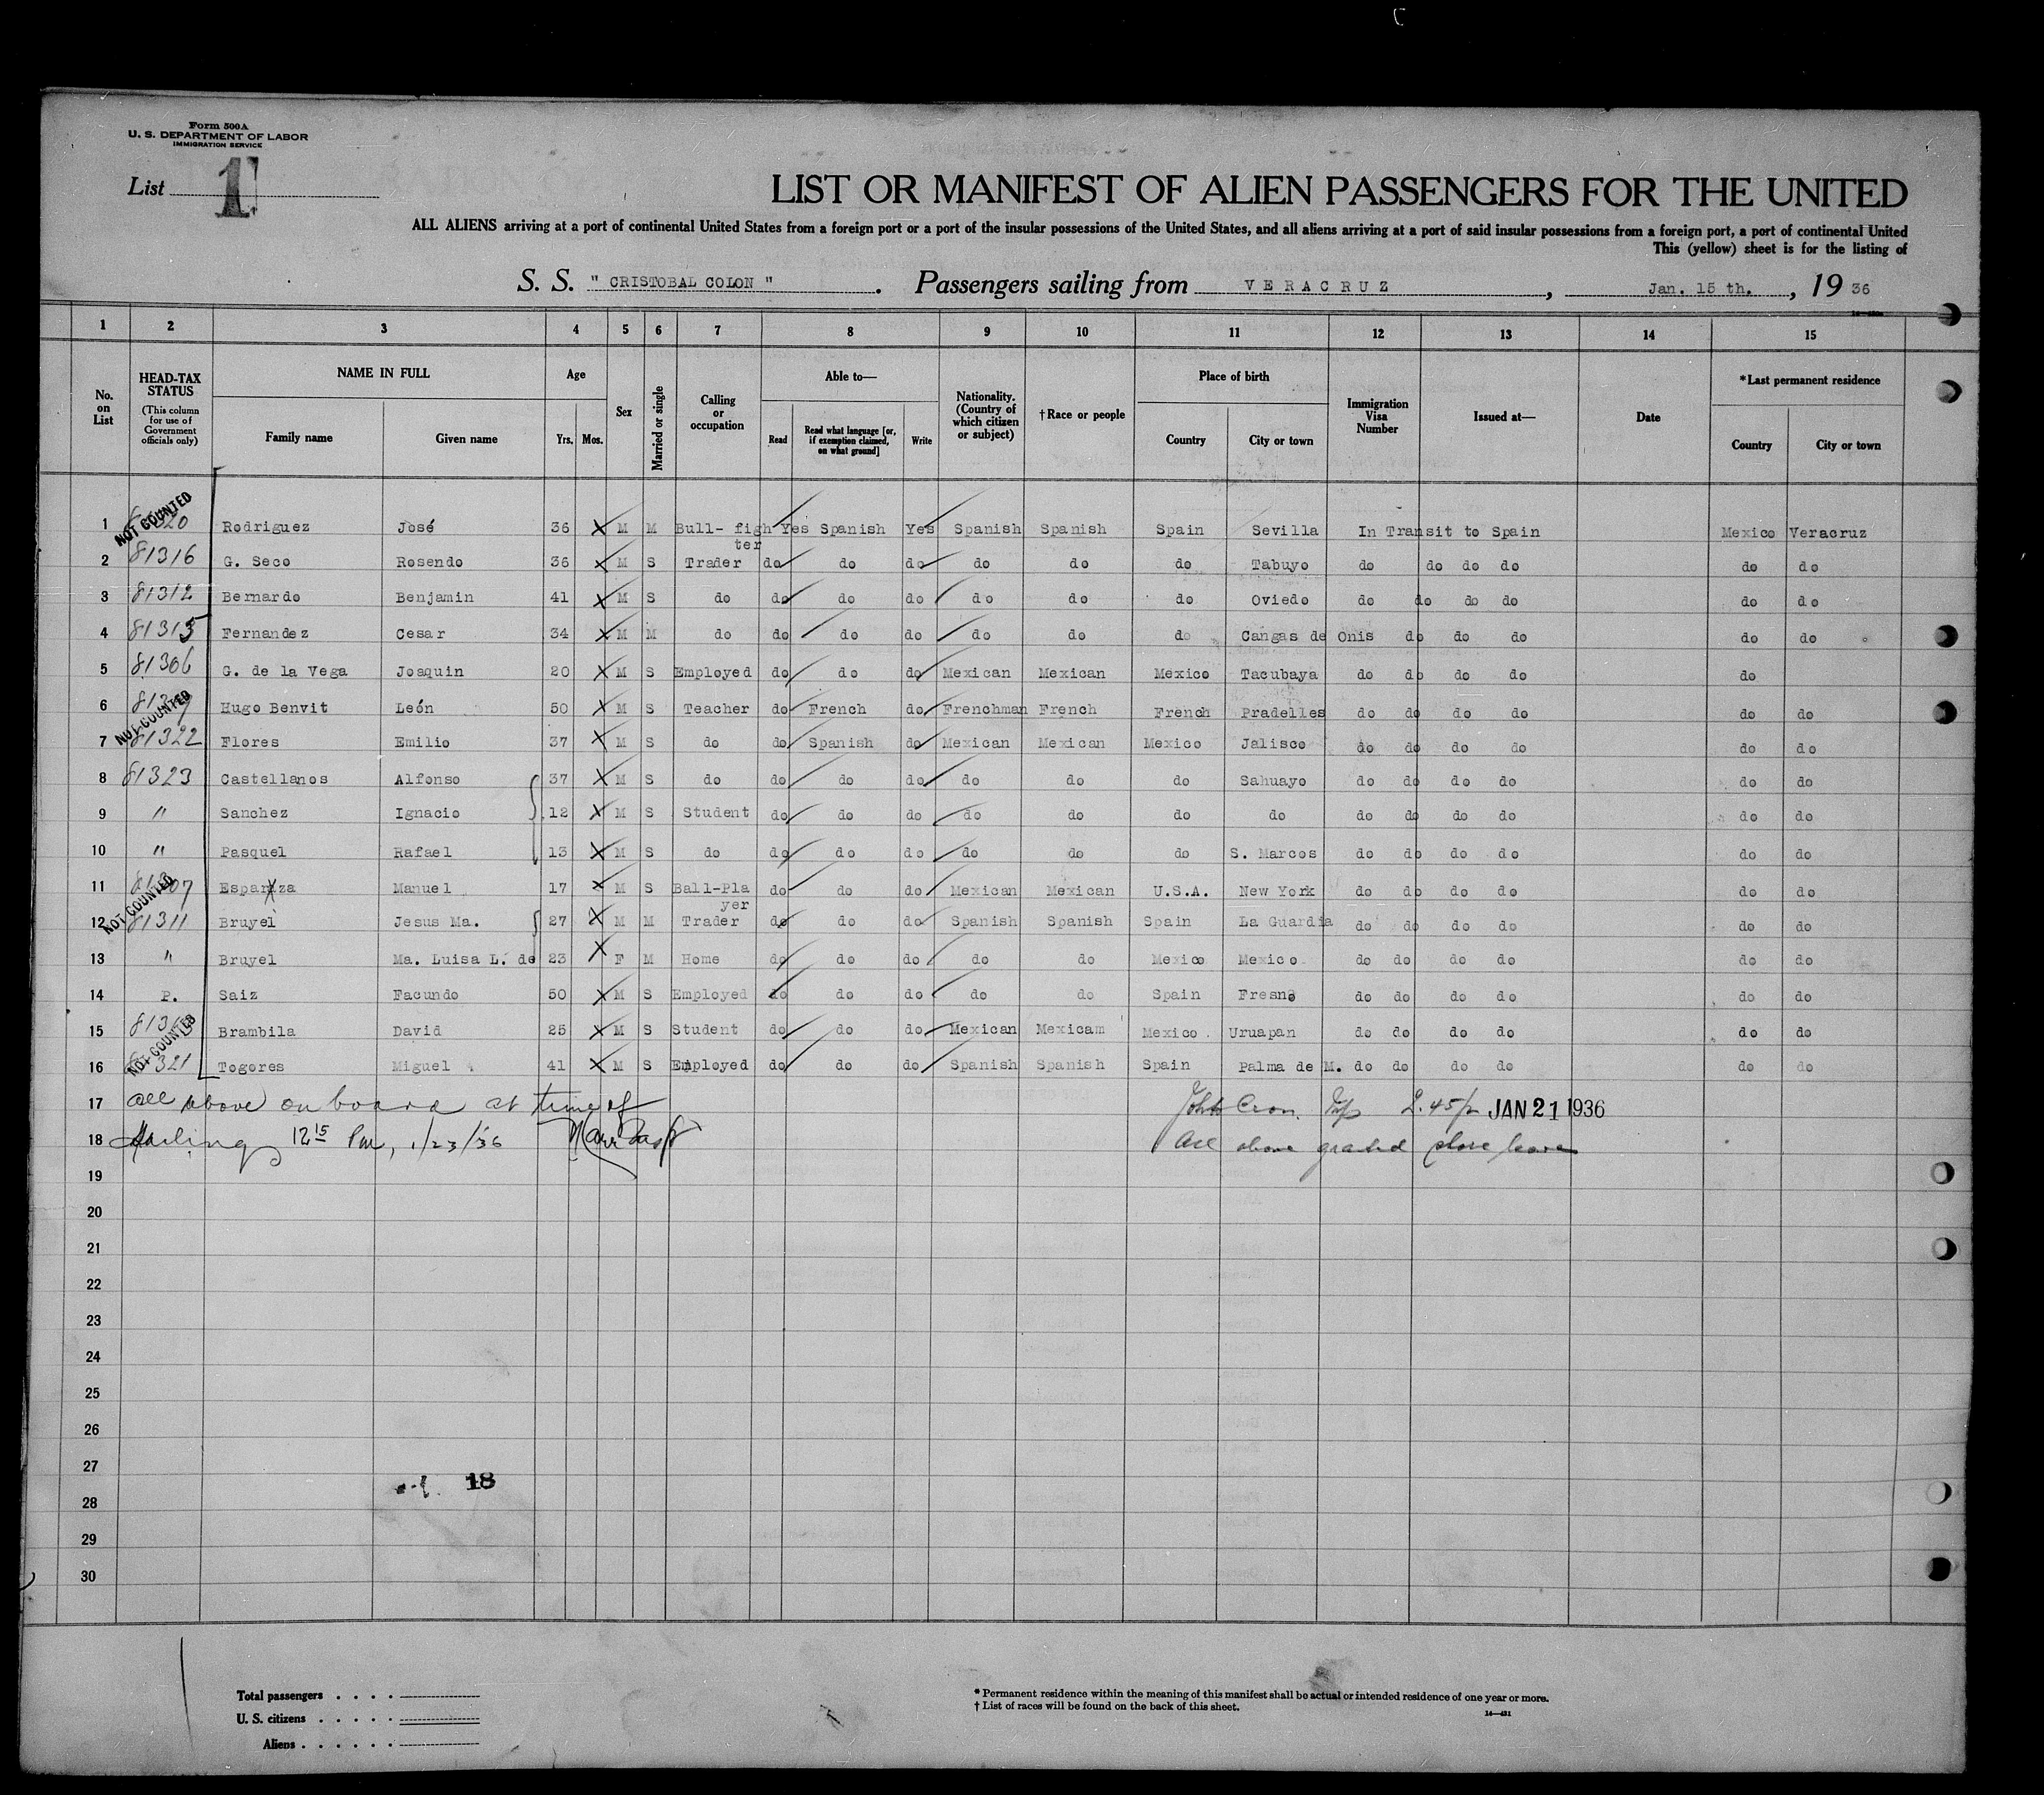 Form 500A
U. S. DEPARTMENT OF LABOR
IMMIGRATION SERVICE
List 1
LIST OR MANIFEST OF ALIEN PASSENGERS FOR THE UNITED
ALL ALIENS arriving at a port of continental United States from a foreign port or a port of the insular possessions of the United States, and all aliens arriving at a port of said insular possessions from a foreign port, a port of continental United
This (yellow) sheet is for the listing of
S. S. " CRISTOBAL COLON ". Passengers sailing from VERACRUZ, Jan. 15 th., 19 36
1 2 3 4 5 6 7 8 9 10 11 12 13 14 15
No. on List
HEAD-TAX STATUS
(This column for use of Government officials only)
NAME IN FULL
Family name
Given name
Age
Yrs.
Mos.
Sex
Married or single
Calling or occupation
Able to—
Read
Read what language [or, if exemption claimed, on what ground]
Write
Nationality. (Country of which citizen or subject)
† Race or people
Place of birth
Country
City or town
Immigration Visa Number
Issued at—
Date
*Last permanent residence
Country
City or town
1 NOT COUNTED Rodriguez José 36 X M M Bull- figh Yes Spanish Yes Spanish Spanish Spain Sevilla In Transit to Spain Mexico Veracruz
ter
2 81316 G. Seco Rosendo 36 X M S Trader do do do do do do Tabuyo do do do do do do
3 81312 Bernardo Benjamin 41 X M S do do do do do do do Oviedo do do do do do do
4 81315 Fernandez Cesar 34 X M M do do do do do do do Cangas de Onis do do do do do
5 81306 G. de la Vega Joaquin 20 X M S Employed do do do Mexican Mexican Mexico Tacubaya do do do do do
6 Hugo Benvit León 50 X M S Teacher do French do Frenchman French French Pradelles do do do do do do
7 NOT COUNTED 81322 Flores Emilio 37 X M S do do Spanish do Mexican Mexican Mexico Jalisco do do do do do do
8 81323 Castellanos Alfonso 37 X M S do do do do do do do Sahuayo do do do do do do
9 " Sanchez Ignacio 12 X M S Student do do do do do do do do do do do do do
10 " Pasquel Rafael 13 X M S do do do do do do do S. Marcos do do do do do do
11 Esparza Manuel 17 X M S Ball-Pla do do do Mexican Mexican U.S.A. New York do do do do do do
yer
12 NOT COUNTED 81311 Bruyel Jesus Ma. 27 X M M Trader do do do Spanish Spanish Spain La Guardia do do do do do do
13 " Bruyel Ma. Luisa L. de 23 X F M Home do do do do do Mexico Mexico do do do do do do
14 P. Saiz Facundo 50 X M S Employed do do do do do Spain Fresno do do do do do do
15 Brambila David 25 X M S Student do do do Mexican Mexicam Mexico Uruapan do do do do do do
16 NOT COUNTED Togores Miguel 41 X M S Employed do do do Spanish Spanish Spain Palma de M. do do do do do do
17 all above on board at time of John Cron 2.45p JAN 21 1936
18 Sailing 12 15 Pm, 1/23/36 All above granted shore leave
19
20
21
22
23
24
25
26
27
18
28
29
30
Total passengers
U. S. citizens
Aliens
* Permanent residence within the meaning of this manifest shall be actual or intended residence of one year or more.
† List of races will be found on the back of this sheet.
14—431